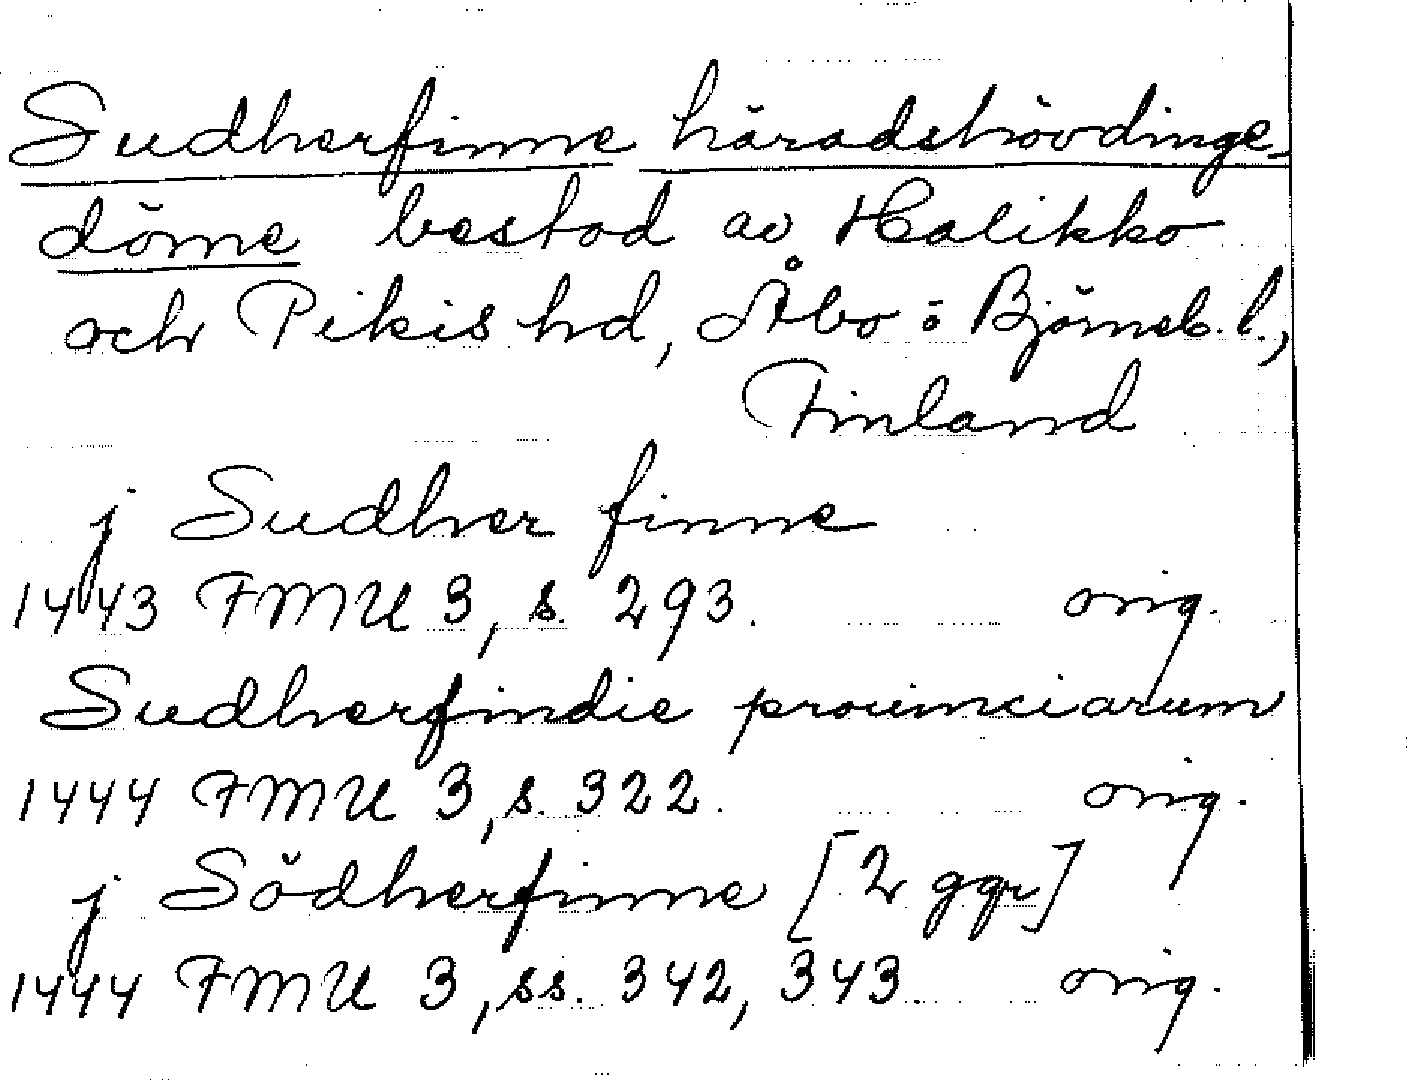 Sudherfinne häradshövdinge-
döme bestod av Halikko
och Pikis hd, Åbo o Björneb. l.,
Finland
j Sudher finne
1443 FMU 3, s. 293. orig.
Sudherfindie prouinciarum
1444 FMU 3, s. 322. orig.
j Södherfinne [2 ggr]
1444 FMU 3, ss. 342, 343. orig.